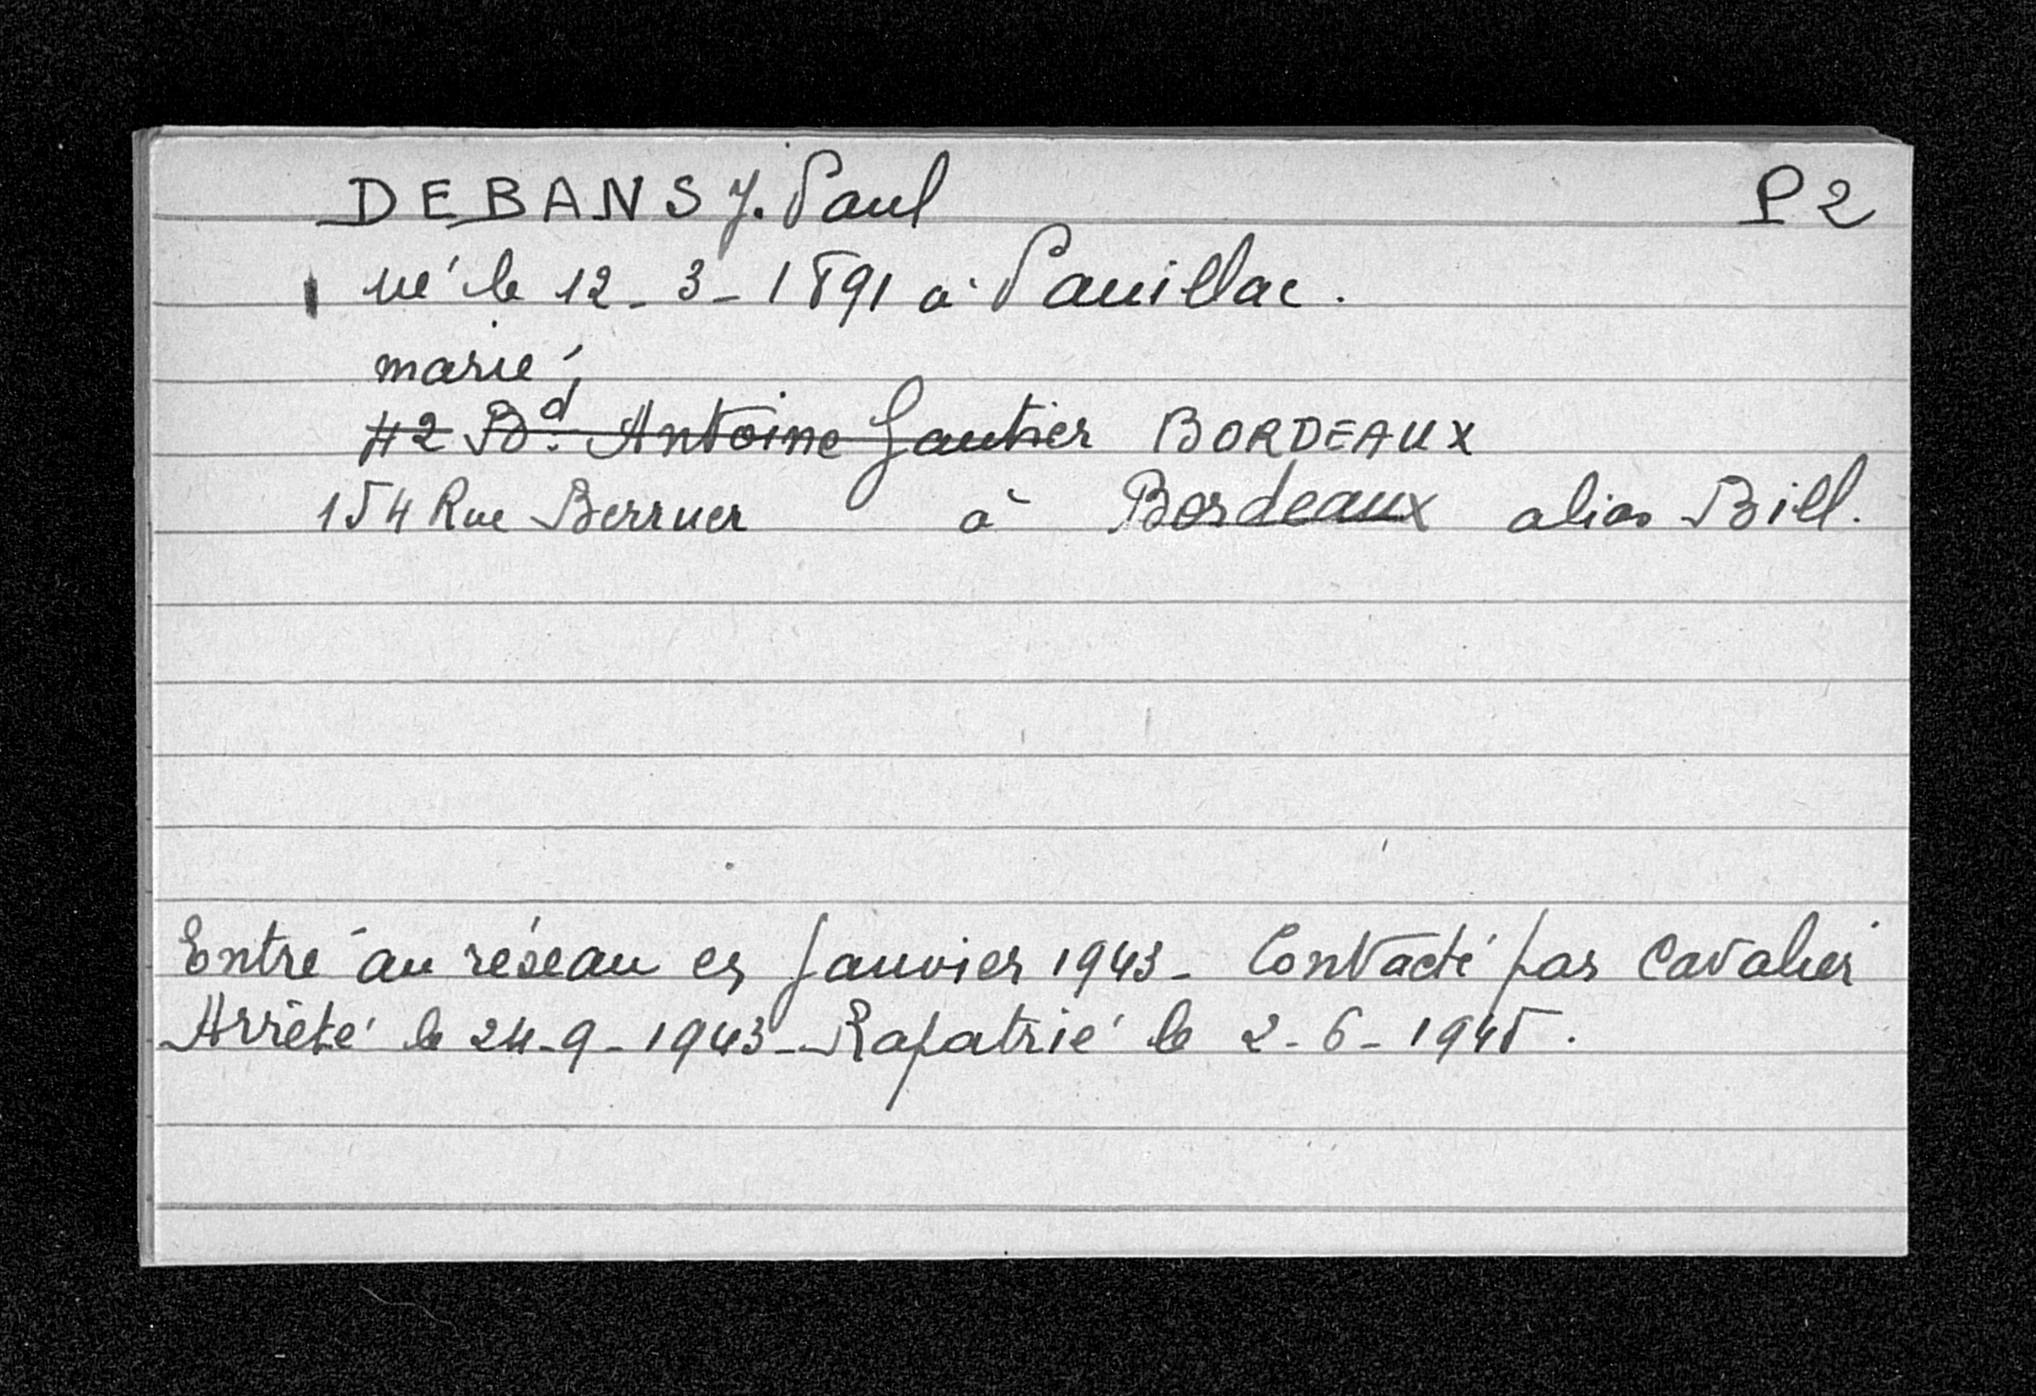 DEBANS J. Paul P2
né le 12-3-1891 à Pauillac.
marié,
42 Bd. Antoine Gautier BORDEAUX
154 Rue Berruer à Bordeaux alias Bill.
Entré au réseau en Janvier 1943 - Contacté par Cavalier
Arrêté le 24-9-1943 - Rapatrié le 2-6-1945.